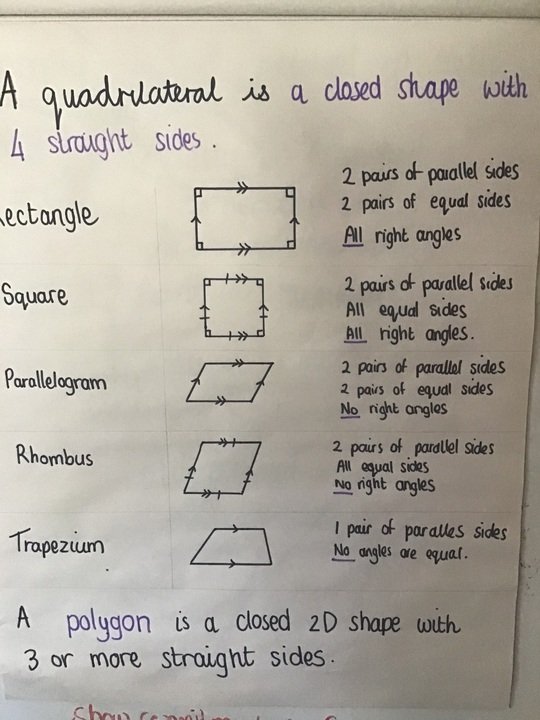 A quadrilateral is a closed shape with
4 straight sides.
ectangle
2 pairs of parallel sides
2 pairs of equal sides
All right angles
Square
2 pairs of parallel sides
All equal sides
All right angles.
Parallelogram
2 pairs of parallel sides
2 pairs of equal sides
No right angles
Rhombus
2 pairs of parallel sides
All equal sides
No right angles
Trapezium
1 pair of paralles sides
No angles are equal.
A polygon is a closed 2D shape with
3 or more straight sides.